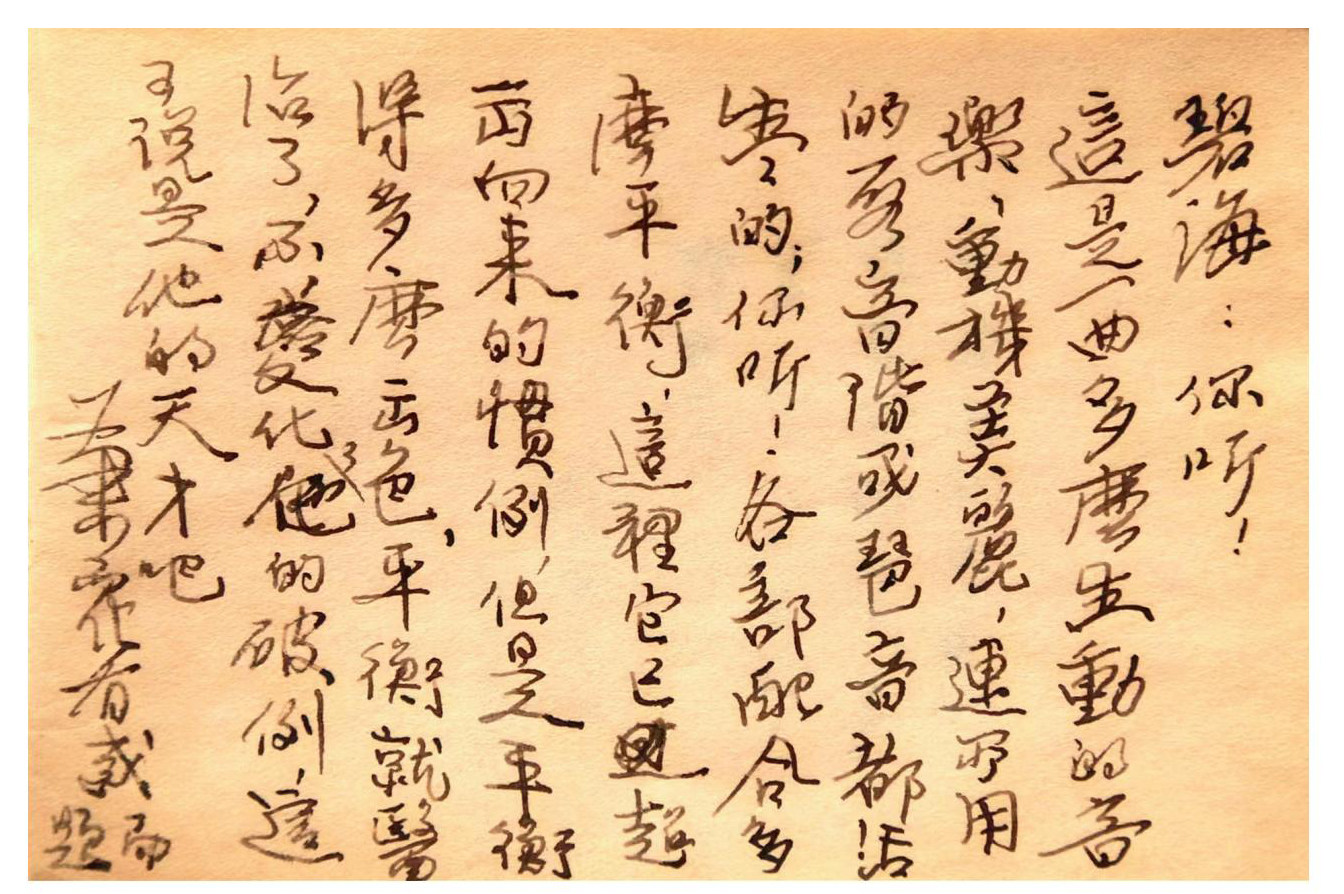 碧海：你听！
這是一曲多麼生動的音
樂，動機美麗，連所用
的音階或琶音都活
生生的；你听！各部配合多
麼平衡，這裡它已超
出向来的慣例，但是平衡
得多麼出色，平衡就醫
治了，變化了他的破例，這
可說是他的天才吧
作者感而題